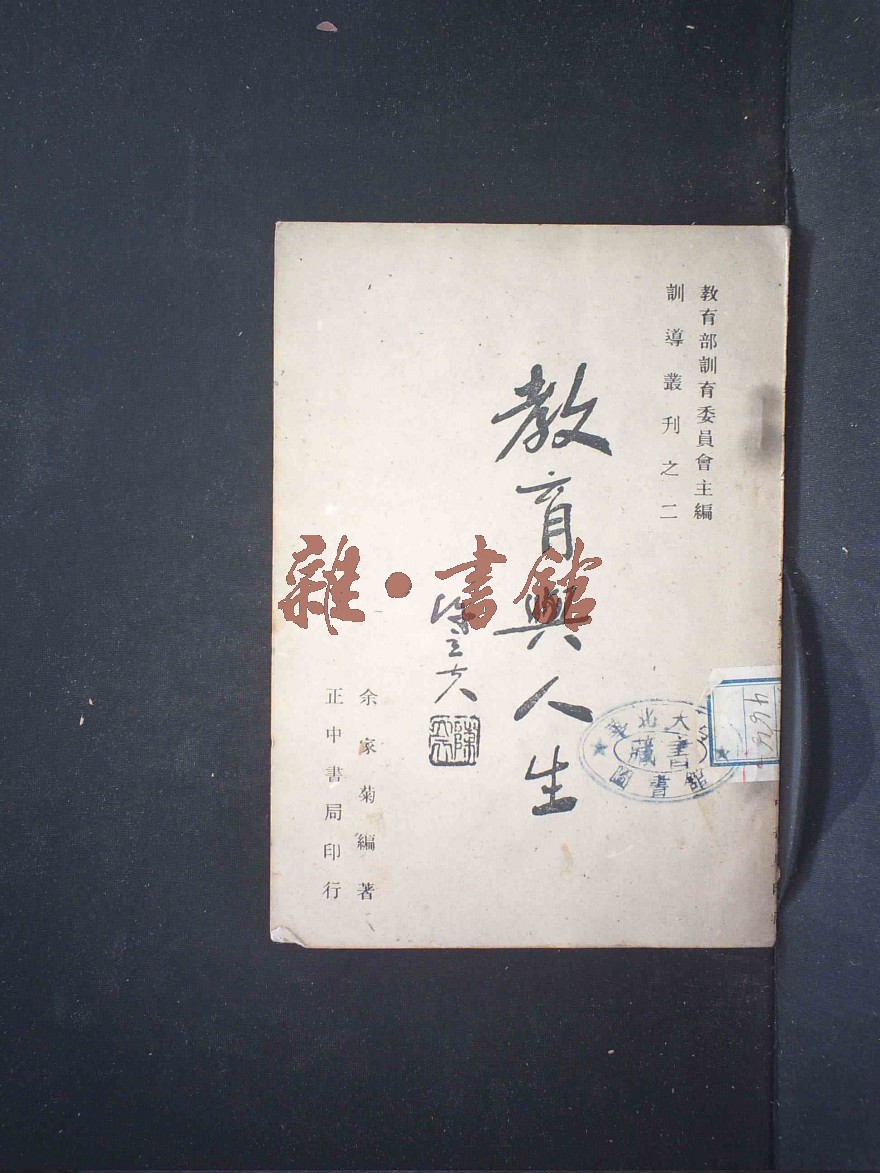 教育部訓育委員會主編
訓導叢刊之二
教育與人生
陳立夫
余家菊編著
正中書局印行
雜·書館
藏書
圖書館
466